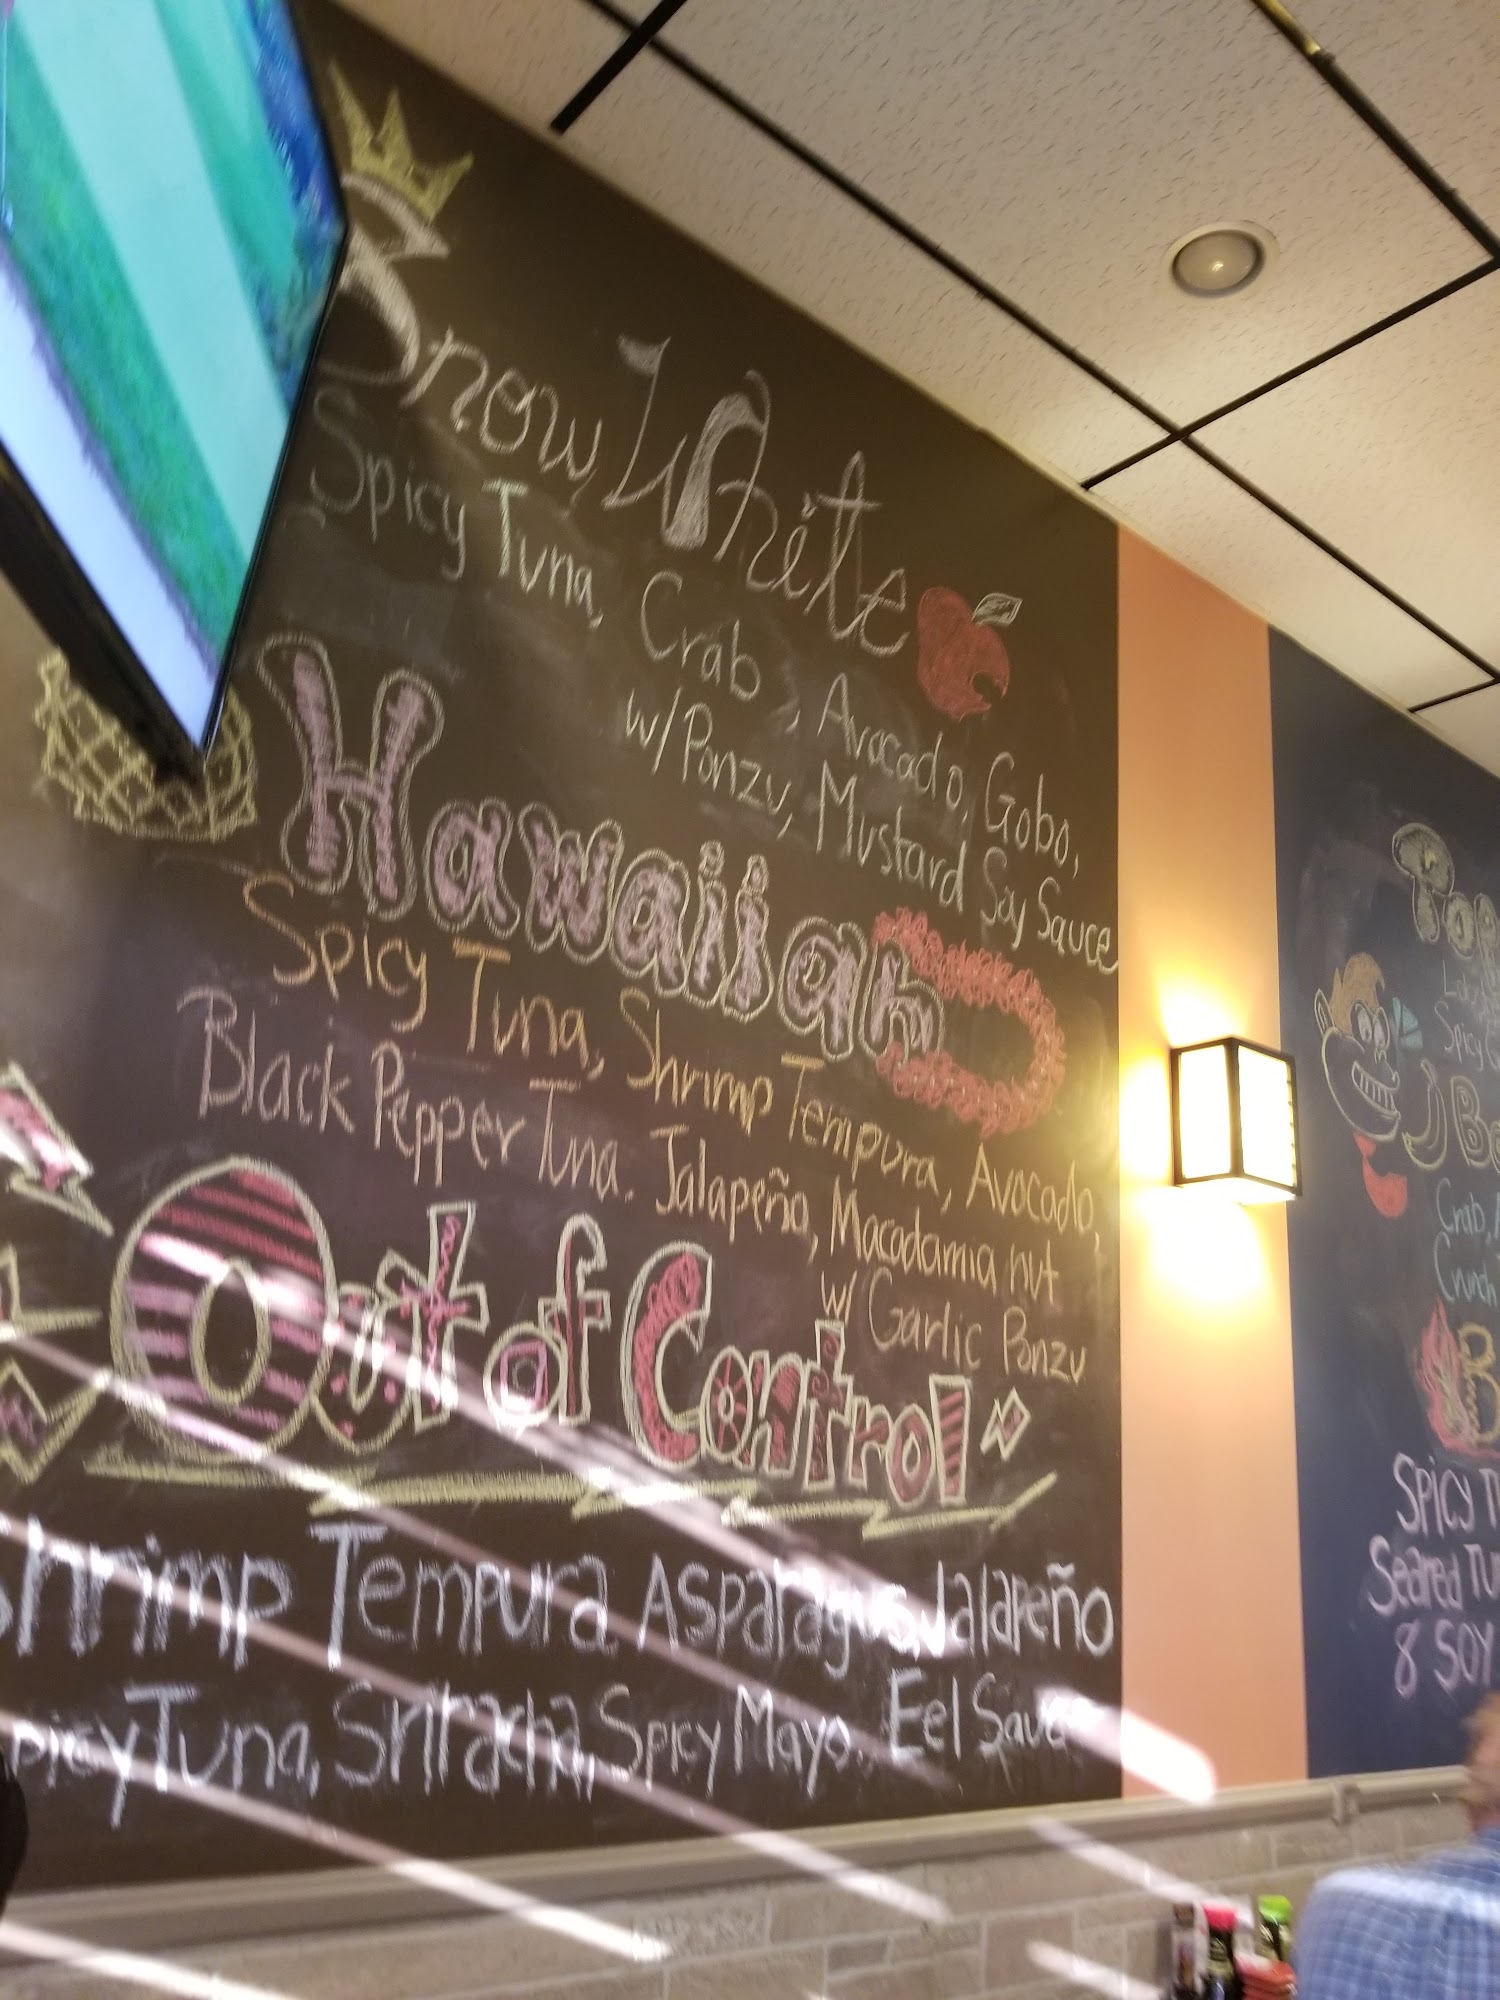 Snow White
Spicy Tuna, Crab, Avocado, Gobo,
w/Ponzu, Mustard Soy Sauce
Hawaiian
Spicy Tuna, Shrimp Tempura, Avocado,
Black Pepper Tuna. Jalapeño, Macadamia nut
w/ Garlic Ponzu
Out of Control
Shrimp Tempura Asparagus, Jalapeño
Spicy Tuna, Sriracha, Spicy Mayo. Eel Sauce
Spicy
Crab,
Crunch
Spicy
Seared
& Soy